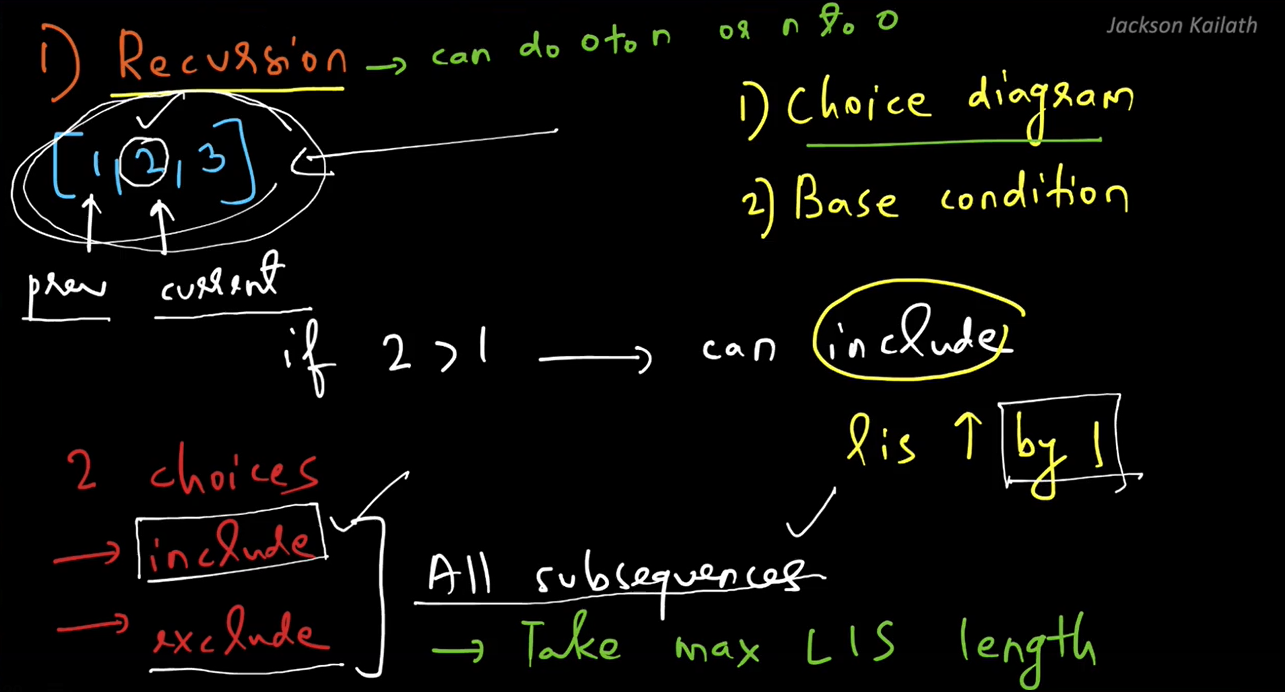 Jackson Kailath
1) Recursion → can do 0 to n or n to 0
[1, 2, 3]
prev current
1) Choice diagram
2) Base condition
if 2 > 1 → can include
lis ↑ by 1
2 choices
→ include
→ exclude
All subsequences
→ Take max LIS length